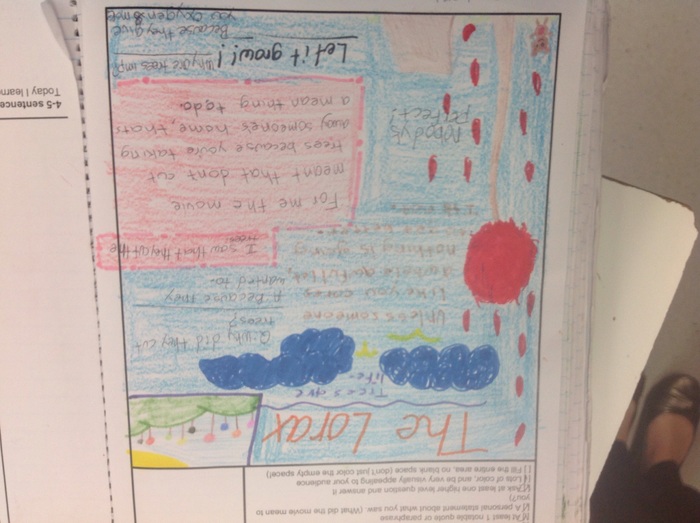 At least 1 notable quote or paraphrase
A personal statement about what you saw. (What did the movie mean to
you?)
Ask at least one higher level question and answer it
Lots of color, and be very visually appealing to your audience
[ ] Fill the entire area, no blank space (don't just color the empty space!)
The Lorax
Trees give
life.
Q: Why did they cut
trees?
A: Because they
wanted to.
Unless someone
like you cares
a whole awful lot,
nothing is going
I saw that they cut the
trees.
For me the movie
meant that dont cut
trees because you're taking
away someone's home, thats
a mean thing to do.
nobody's
perfect!
Let it grow!!
Why are trees imp
Because they give
you oxygen
4-5 sentence
Today I learn